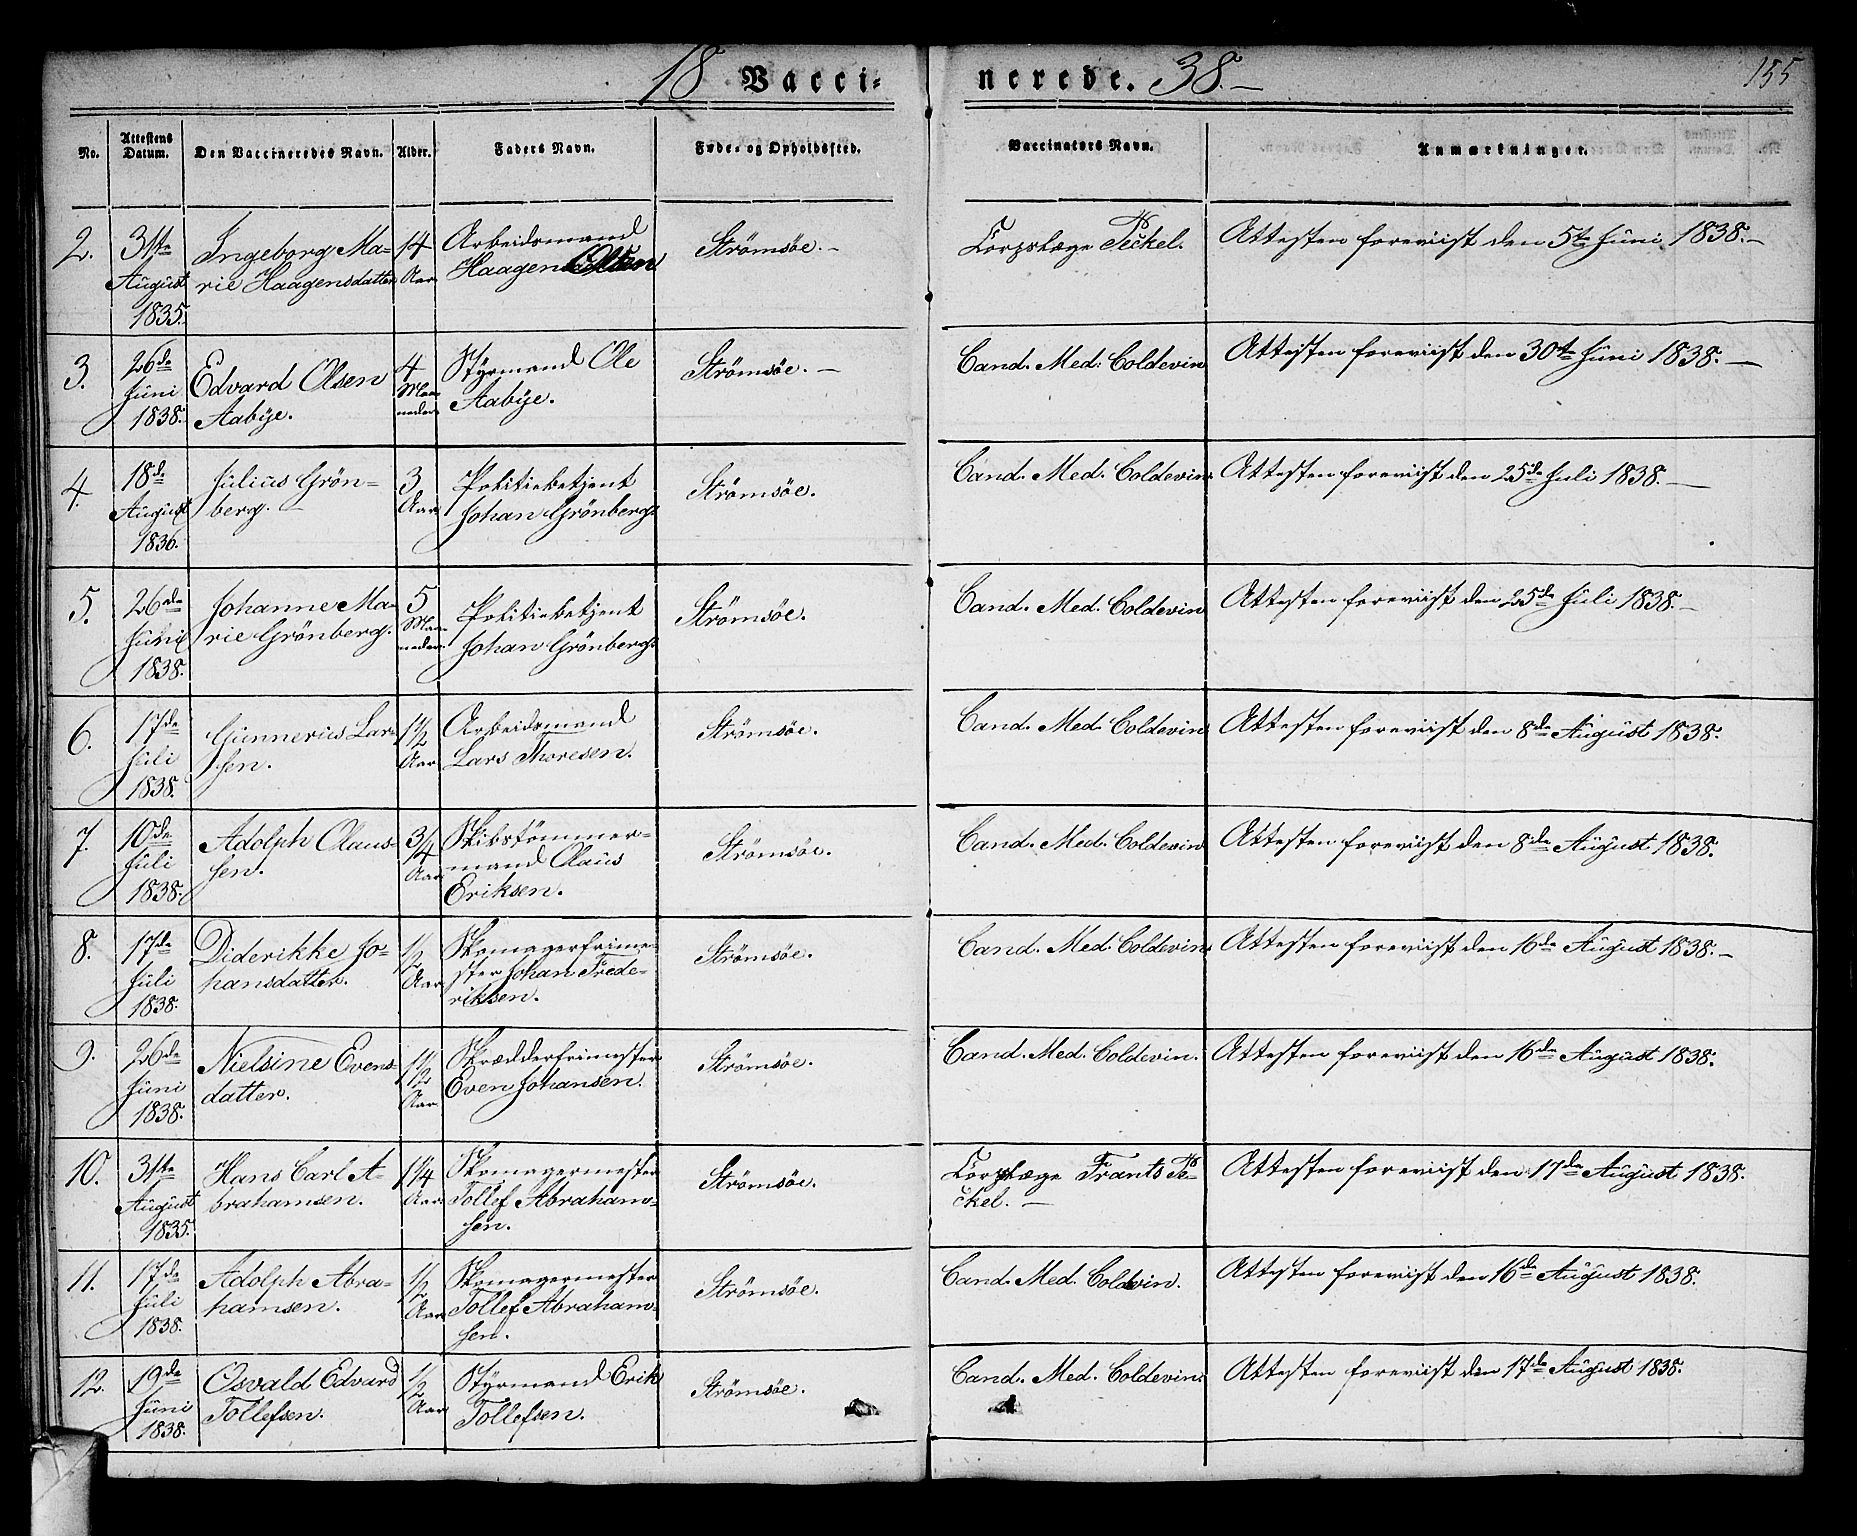 18 Vacci- nerede. 38.— 155
No. | Attestens Datum. | Den Vaccineredes Navn. | Alder. | Faders Navn. | Føde- og Opholdssted. | Vaccinateurs Navn. | Anmærkninger.
2. | 31te August 1835. | Ingeborg Marie Haagensdatter | 14 Aar | Arbeidsmand Haagen Olsen | Strömsöe.— | Corpslæge Peckel. | Attesten foreviist den 5te Juni 1838.—
3. | 26de Juni 1838. | Edvard Olsen Aabÿe. | 4 Maaneder | Stÿrmand Ole Aabÿe. | Strömsöe.— | Cand. Med. Coldevin | Attesten foreviist den 30te Juni 1838.—
4. | 18de August 1836. | Julius Grönberg.— | 3 Aar | Politiebetjent Johan Grönberg. | Strömsöe. | Cand. Med. Coldevin. | Attesten foreviist den 25de Juli 1838.—
5. | 26de Juni 1838. | Johanne Marie Grönberg. | 5 Maaneder | Politiebetjent Johan Grönberg. | Strömsöe. | Cand. Med. Coldevin | Attesten foreviist den 25de Juli 1838.—
6. | 17de Juli 1838. | Gunnerius Larsen. | 1 1/2 Aar | Arbeidsmand Lars Thoresen. | Strömsöe. | Cand. Med. Coldevin | Attesten foreviist den 8de August 1838.
7. | 10de Juli 1838. | Adolph Olaussen. | 3/4 Aar | Skibstömmermand Olaus Eriksen. | Strömsöe. | Cand. Med. Coldevin | Attesten foreviist den 8de August 1838.
8. | 17de Juli 1838. | Diderikke Johansdatter. | 1/2 Aar | Skomagerfrimester Johan Frederiksen. | Strömsöe. | Cand. Med. Coldevin. | Attesten foreviist den 16de August 1838.—
9. | 26de Juni 1838. | Nielsine Evensdatter. | 1 1/2 Aar | Skrædderfrimester Even Johansen. | Strömsöe. | Cand. Med. Coldevin. | Attesten foreviist den 16de August 1838.
10. | 31te August 1835. | Hans Carl Abrahamsen. | 1 1/4 Aar | Skomagermester Tollef Abrahamsen. | Strömsöe. | Corpslæge Frants Peckel.— | Attesten foreviist den 17de August 1838.
11. | 17de Juli 1838. | Adolph Abrahamsen. | 1/2 Aar | Skomagermester Tollef Abrahamsen. | Strömsöe. | Cand. Med. Coldevin. | Attesten foreviist den 16de August 1838.
12. | 19de Juni 1838. | Osvald Edvard Tollefsen. | 1/2 Aar | Stÿrmand Erik Tollefsen. | Strömsöe. | Cand. Med. Coldevin. | Attesten foreviist den 17de August 1838.